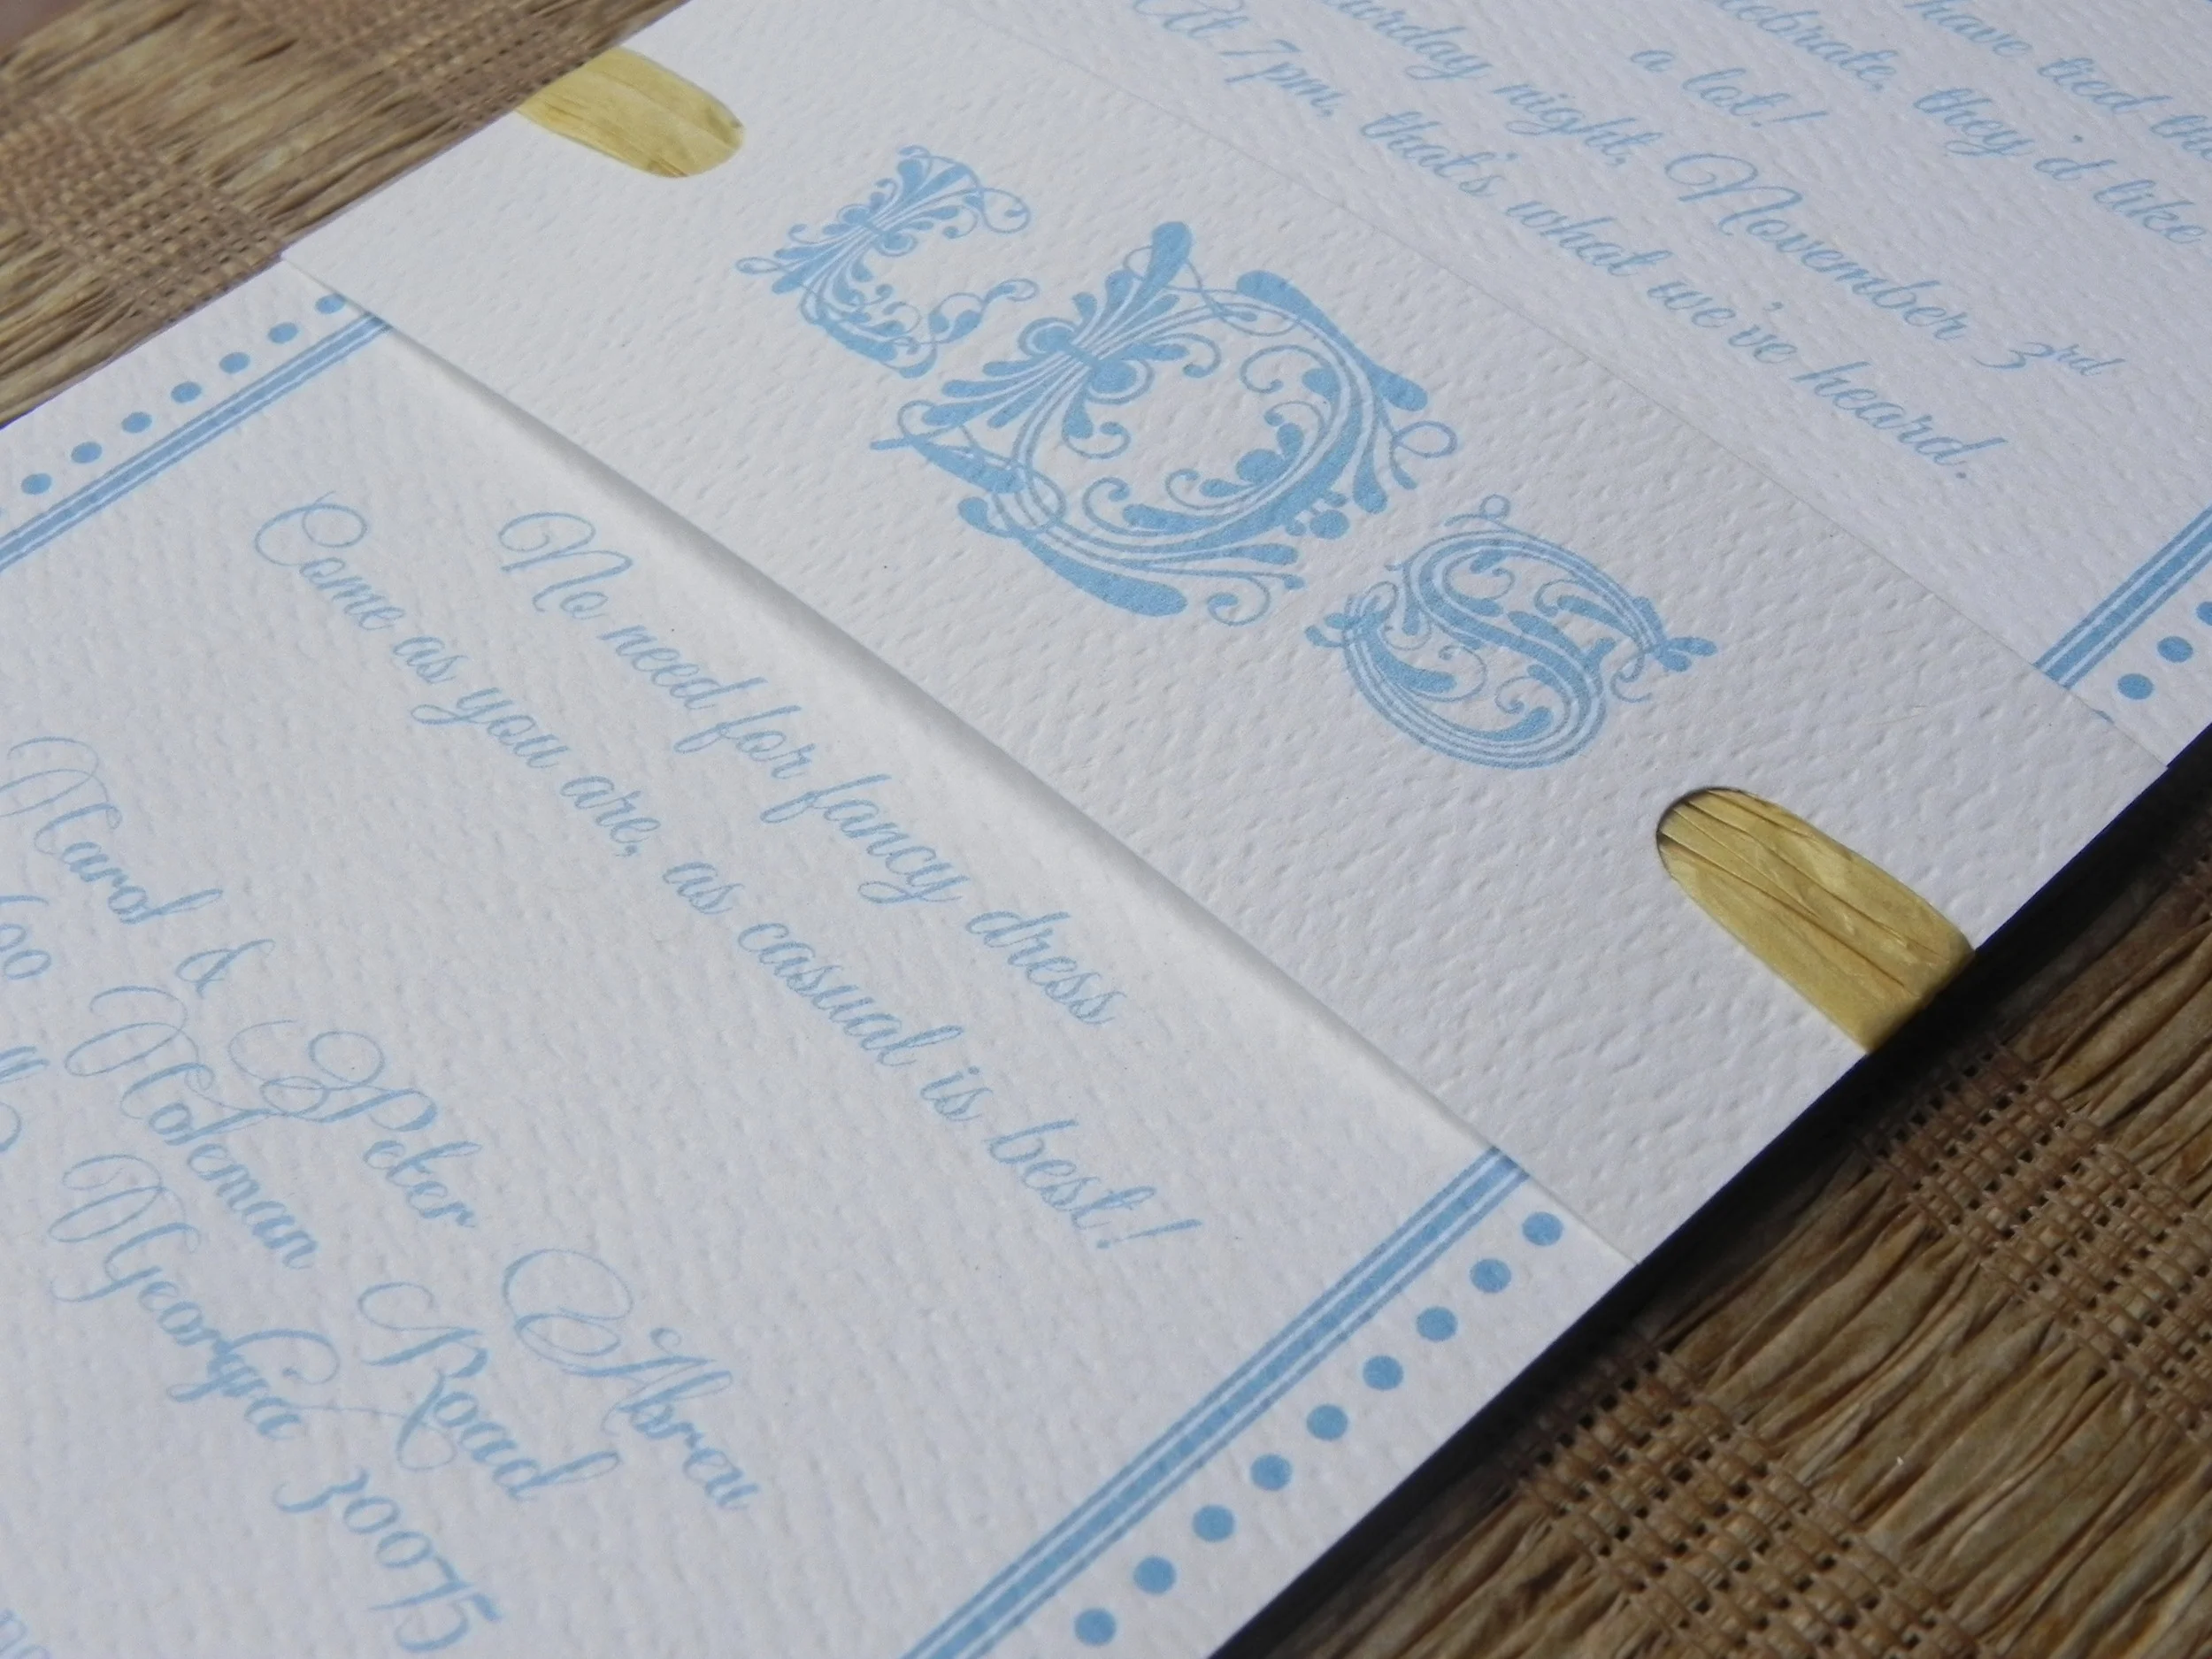 have tied the
celebrate, they'd like
a lot!
Saturday night, November 3rd
At 7 pm, that's what we've heard.
E D S
No need for fancy dress
Come as you are, as casual is best!
Carol & Peter Abreu
Coleman Road
Georgia 30075